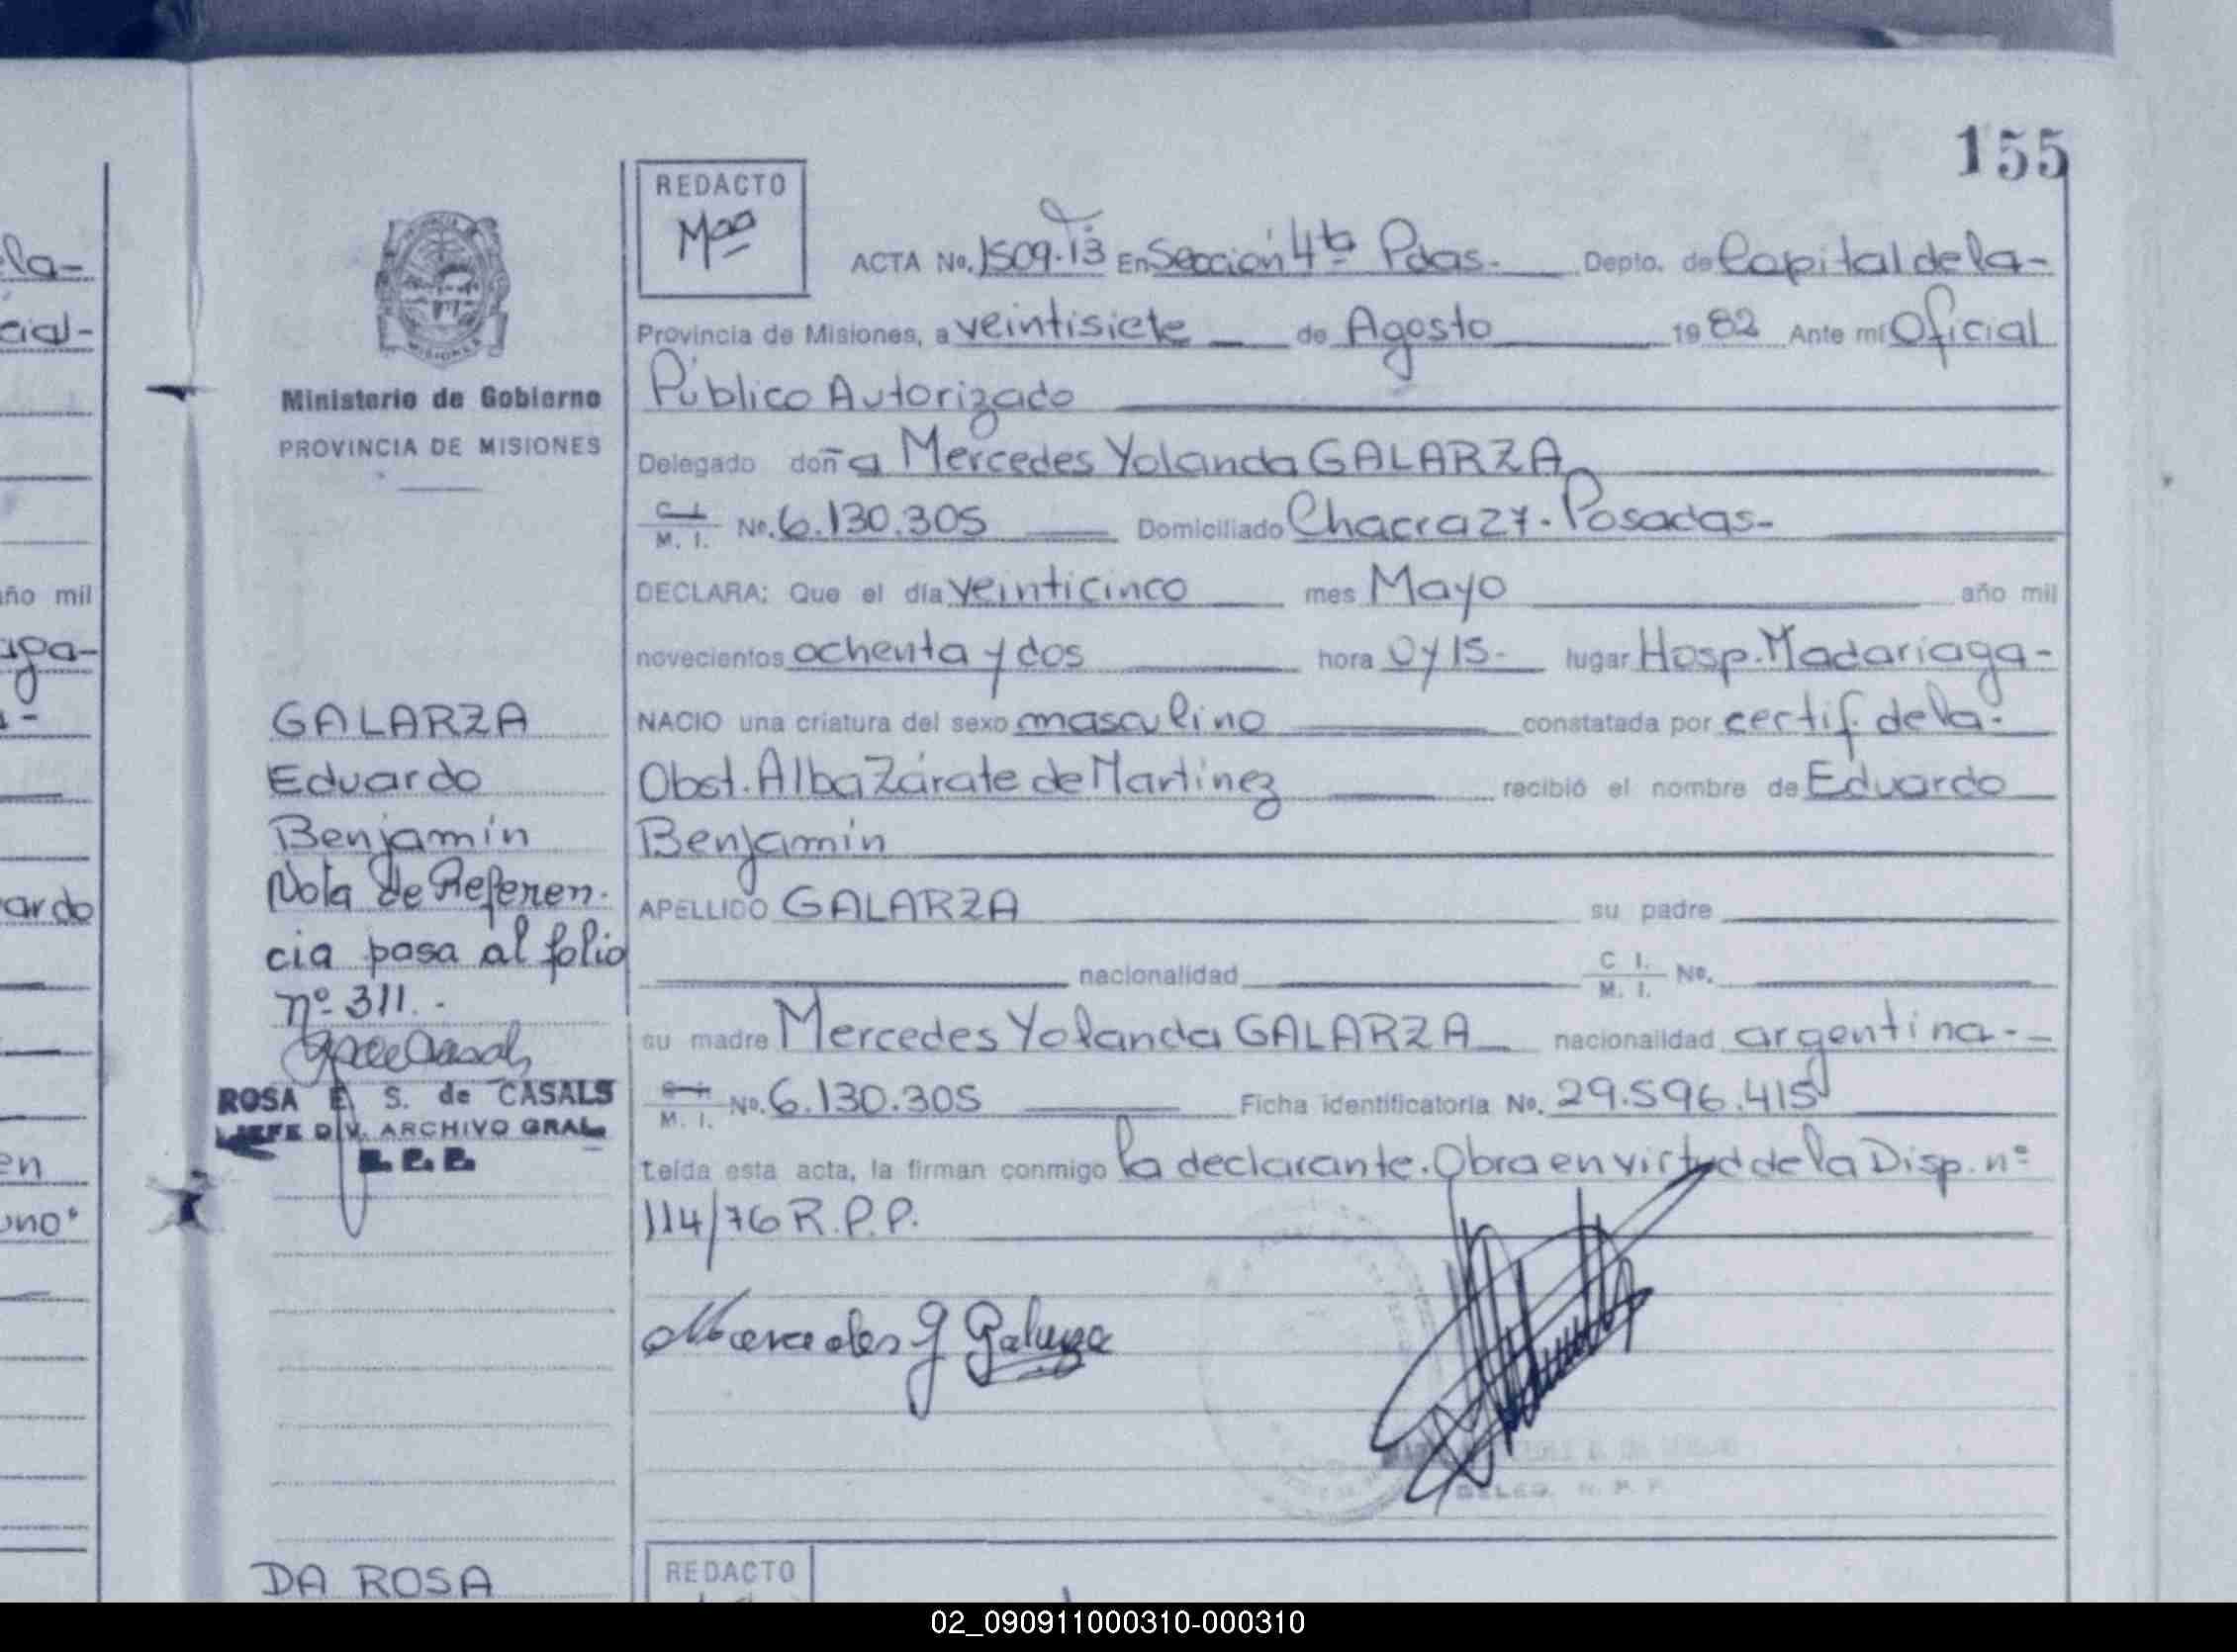 155
REDACTO
Mªª
ACTA No. 1509. T3 En Sección 4ta Pdas.- Depto. de Capital de la-
Provincia de Misiones, a veintisiete de Agosto 1982 Ante mí Oficial
Público Autorizado
Delegado doña Mercedes Yolanda GALARZA
C. I. M. I. No. 6.130.305 Domiciliado Chacra 27. Posadas-
DECLARA: Que el día veinticinco mes Mayo año mil
novecientos ochenta y dos hora 0 y 15- lugar Hosp. Madariaga-
NACIO una criatura del sexo masculino constatada por certif. de la-
Obst. Alba Zárate de Martínez recibió el nombre de Eduardo
Benjamín
APELLIDO GALARZA su padre
nacionalidad C I. M. I. No.
su madre Mercedes Yolanda GALARZA nacionalidad argentina.-
M. I. No. 6.130.305 Ficha identificatoria No. 29.596.415
Leída esta acta, la firman conmigo la declarante. Obra en virtud de la Disp. nº
114/76 R.P.P.
Mercedes Y Galarza
DELEG. R. P. P.
REDACTO
MISIONES
Ministerio de Gobierno
PROVINCIA DE MISIONES
GALARZA
Eduardo
Benjamín
Nota de Referen-
cia pasa al folio
nº 311.-
ROSA E. S. de CASALS
JEFE DIV. ARCHIVO GRAL.
R. P. P.
DA ROSA
la-
cial-
año mil
aga-
ardo
en
uno"
02_090911000310-000310